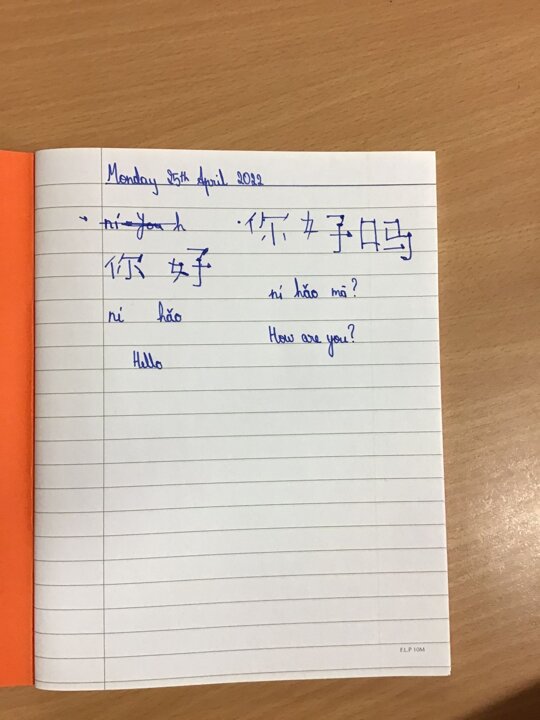 Monday 25th April 2022
ní - You h
你 好
ní hǎo
Hello
你 好 吗
ní hǎo mā?
How are you?
F.L.P 10M